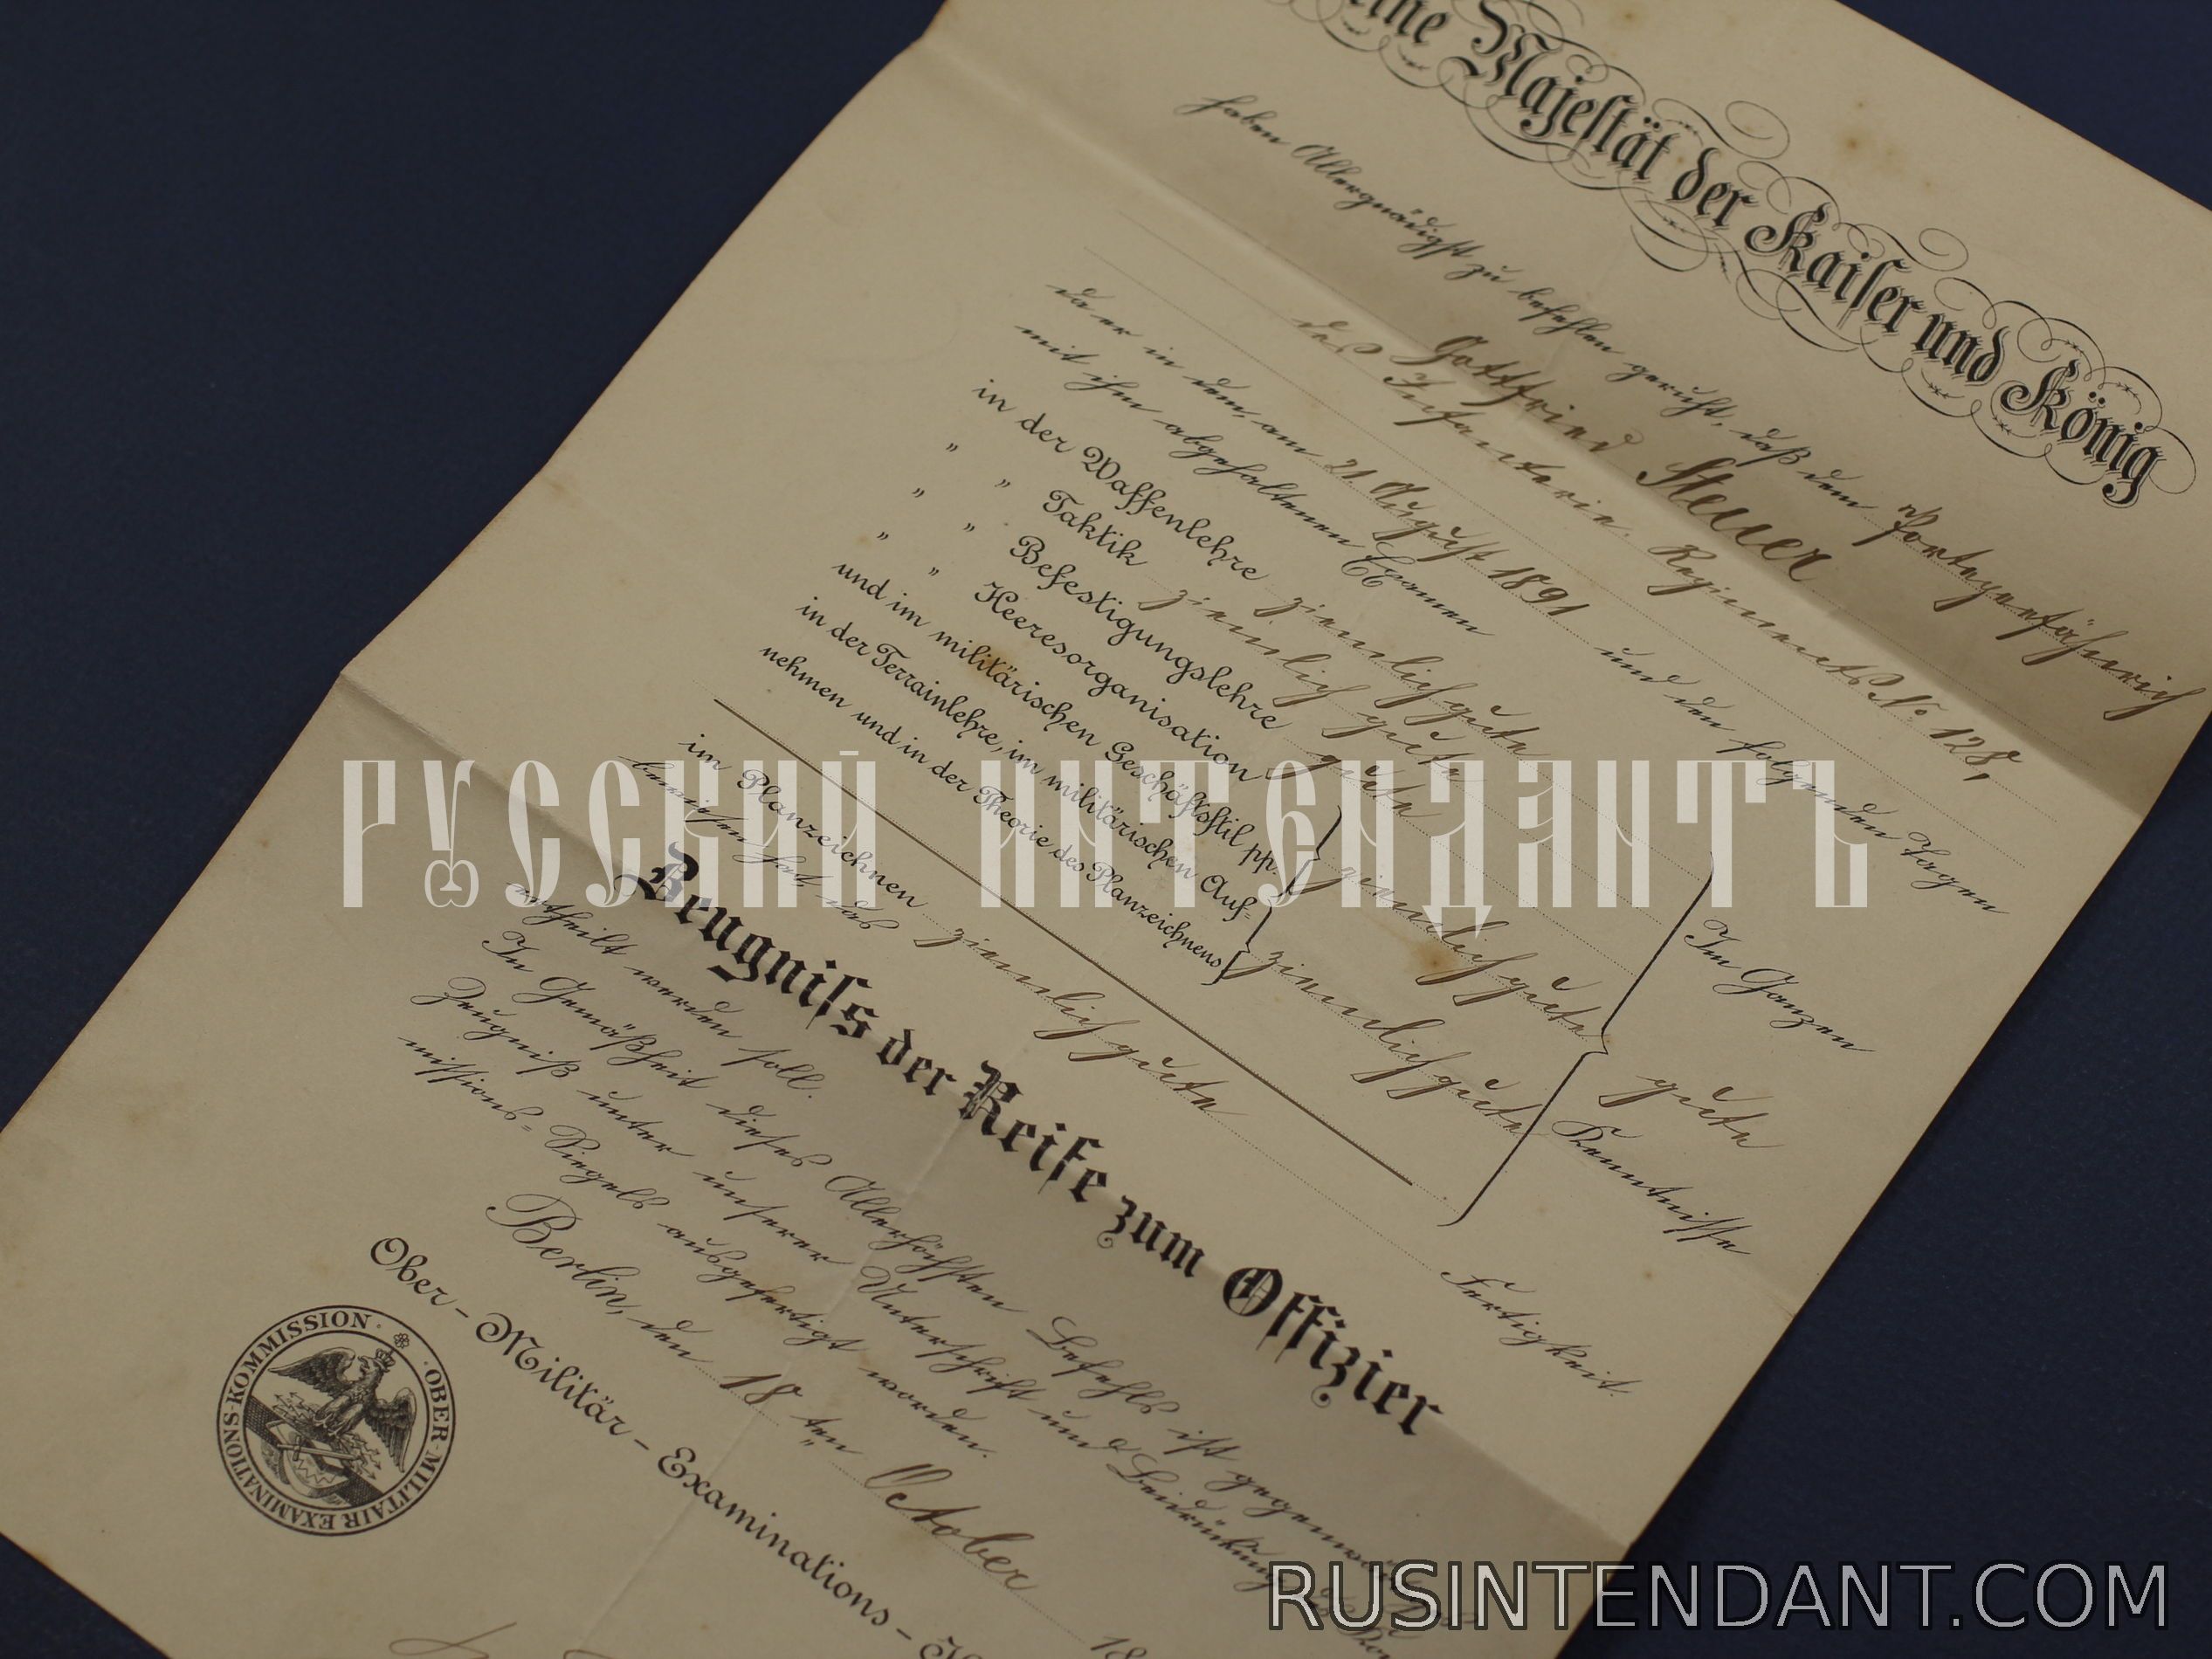 ine Majestät der Kaiser und König
haben Allergnädigst zu befehlen geruht, daß dem Portepeefähnrich
Gottfried Steuer
des Infanterie. Regiments No. 128,
da er in dem, am 21. August 1891 und den folgenden Tagen
mit ihm abgehaltenen Examen
in der Waffenlehre ziemlich gute
" " Taktik ziemlich gute
" " Befestigungslehre gute
" " Heeresorganisation
und im militärischen Geschäftsstil pp. ziemlich gute
in der Terrainlehre, im militärischen Auf-
nehmen und in der Theorie des Planzeichnens ziemlich gute
Im Ganzen
gute
Kenntnisse
im Planzeichnen ziemlich gute Fertigkeit.
bewiesen hat, das
Zeugniss der Reife zum Offizier
ertheilt werden soll.
In Gemäßheit dieses Allerhöchsten Befehls ist gegenwärtiges
Zeugniß unter unserer Unterschrift und Beidrückung des Kom
missions-Siegels ausgefertigt worden.
Berlin, den 18ten October 18
Ober-Militär-Examinations-K
OBER-MILITAIR EXAMINATIONS-KOMMISSION
РУССКИЙ ИНТЕНДАНТЪ
RUSINTENDANT.COM